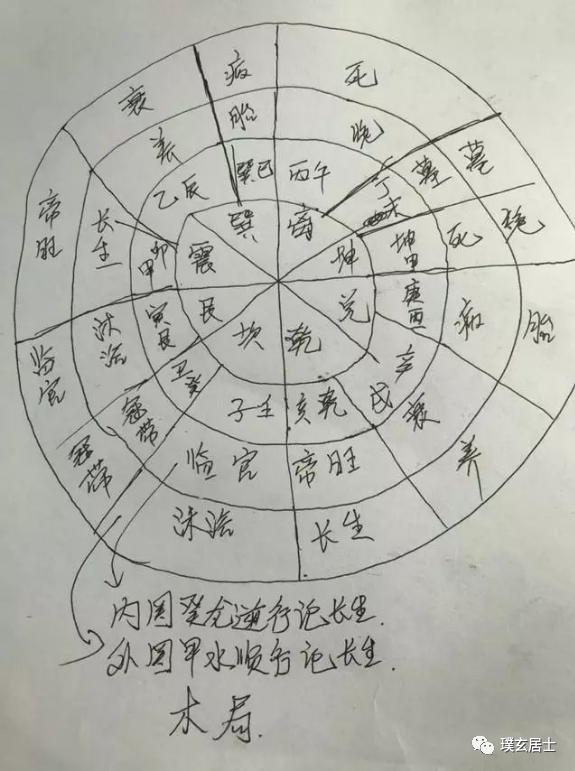 病
死
墓
绝
胎
养
长生
沐浴
冠带
临官
帝旺
衰
胎
绝
墓
死
病
衰
帝旺
临官
冠带
沐浴
长生
养
巽巳
丙午
丁未
坤申
庚酉
辛戌
亥乾
子壬
丑癸
寅艮
卯甲
乙辰
巽
离
坤
兑
乾
坎
艮
震
内圆癸龙逆行论长生.
外圆甲水顺行论长生.
木局.
璞玄居士